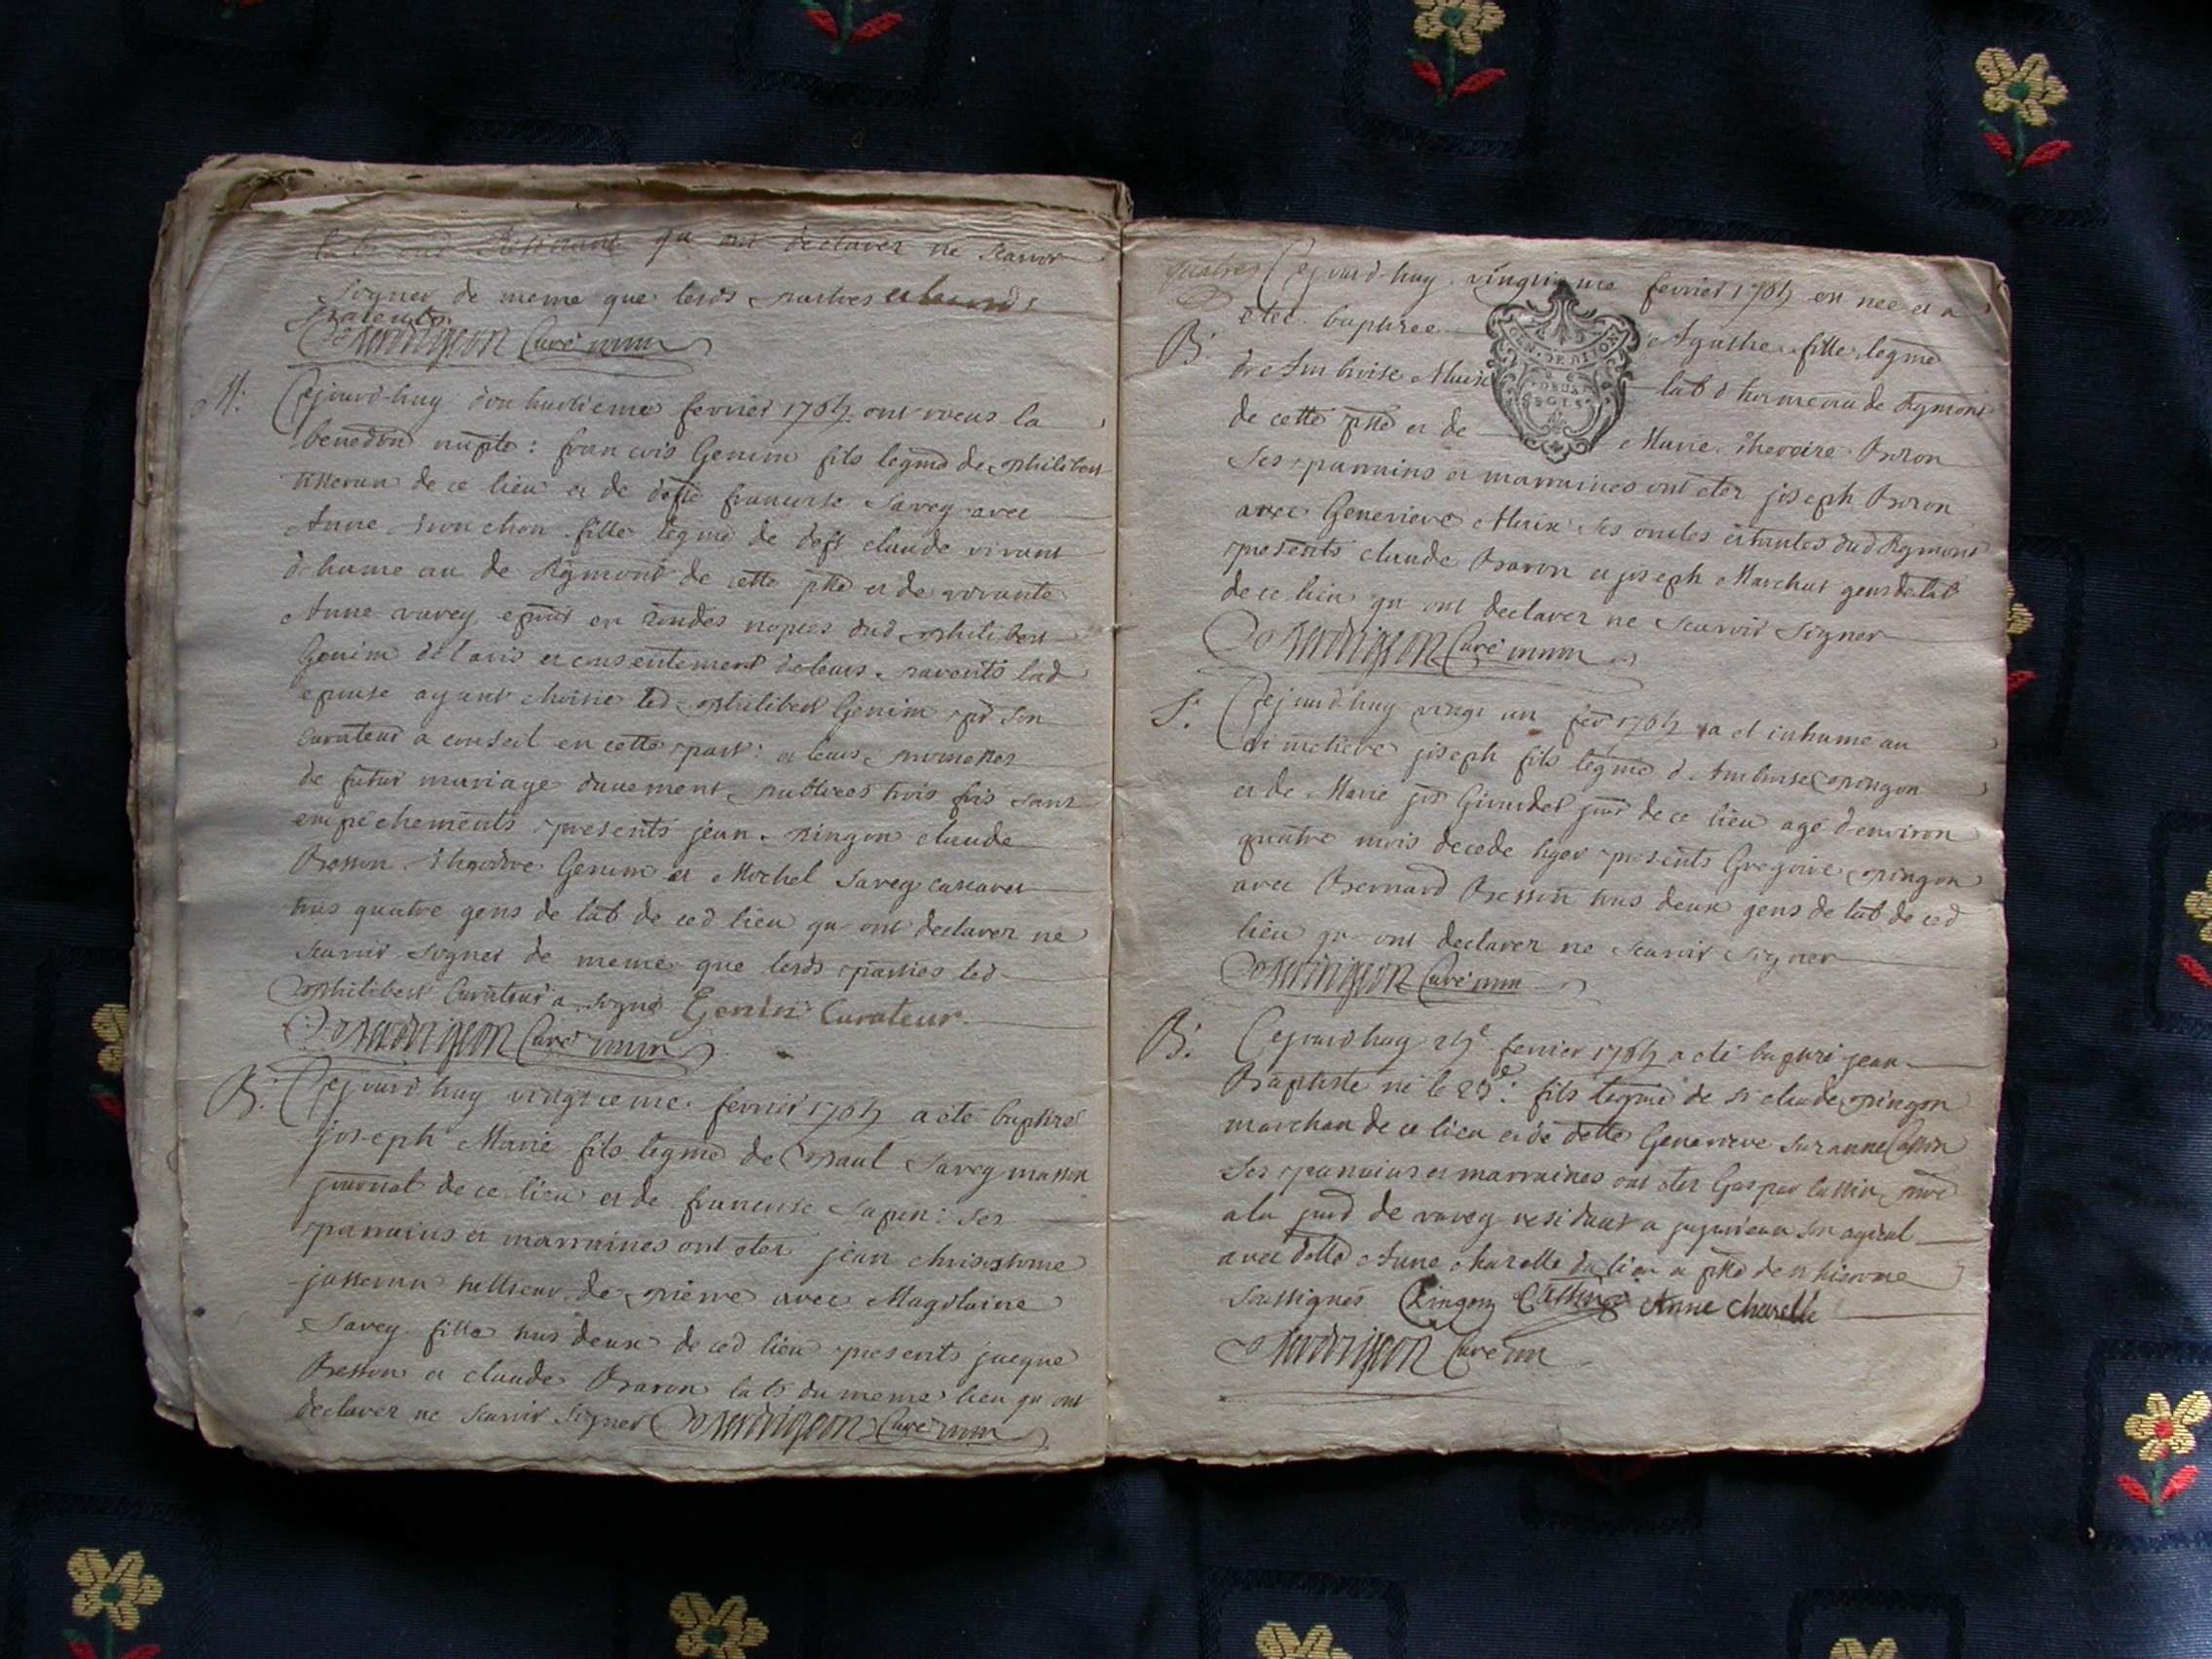 qu ont declarer ne scavoir
signer de meme que lesds
parents
Curé
M: Cejourd'huy dix huitieme fevrier 1764 ont receus la
benedon nuptle: francois Genim fils legme de philibert
tisseran de ce lieu et de deffte francoise Savey avec
Anne fille legme de deft claude vivant
d'hameau de Rigmont de cette psse et de vivante
Anne varey epouse en 2ndes nopces dud philibert
Genim de l'avis et consentement de leurs parents lad
epouse ayant choisie led philibert Genim pr son
curateur a conseil en cette part: et leurs promesses
de futur mariage duuement publiees trois fois sans
empechements presents jean pingon claude
Besson Genim et Michel Savey
tous quatre gens de lab de ced lieu qu ont declarer ne
scavoir signer de meme que lesds parties led
philibert Curateur a signé Genin Curateur
Curé
B: Cejourd'huy vingtieme fevrier 1764 a eté baptisé
joseph Marie fils legme de paul Savey masson
journal de ce lieu et de francoise Sapin: ses
parrains et marraines ont eter jean chrisostome
jusseran tallieur de pierre avec Magdlaine
Savey fille tous deux de ced lieu presents jacque
Besson et claude Baron labs du meme lieu qu ont
declarer ne scavoir signer Curé
quatres Cejourd'huy vingtieme fevrier 1764 est nee et a
B: etee baptisee Agathe fille legme
GEN. DE DIJON
de Ambroise lab d'hameau de Rigmont
de cette psse et de Marie Baron
Ses parrains et marraines ont eter joseph Baron
avec Genevieve ses oncles et tantes dud Rigmont
presents claude Baron et joseph Marchat gens de lab
de ce lieu qu ont declarer ne scavoir signer
Curé
S: Cejourd'huy vingt un fevr 1764 a et inhume au
cimetiere joseph fils legme d'Ambroise pingon
et de Marie jos Girardet jour de ce lieu agé d'environ
quattre mois decede hyer presents Gregoire pingon
avec Bernard Bessin tous deux gens de lab de ced
lieu qu ont declarer ne scavoir signer
Curé
B: Cejourd'huy 24e fevrier 1764 a eté baptisé jean
Baptiste né le 23e: fils legme de sr claude pingon
marchan de ce lieu et de delle Genevieve Suzanne Cassin
Ses parrains et marraines ont eter Gaspar Cassin
a la de varey residant a jujurieux son ayeul
avec delle Anne charelle du lieu et psse de st hierome
Soussignés Pingon Cassin Anne charelle
Curé